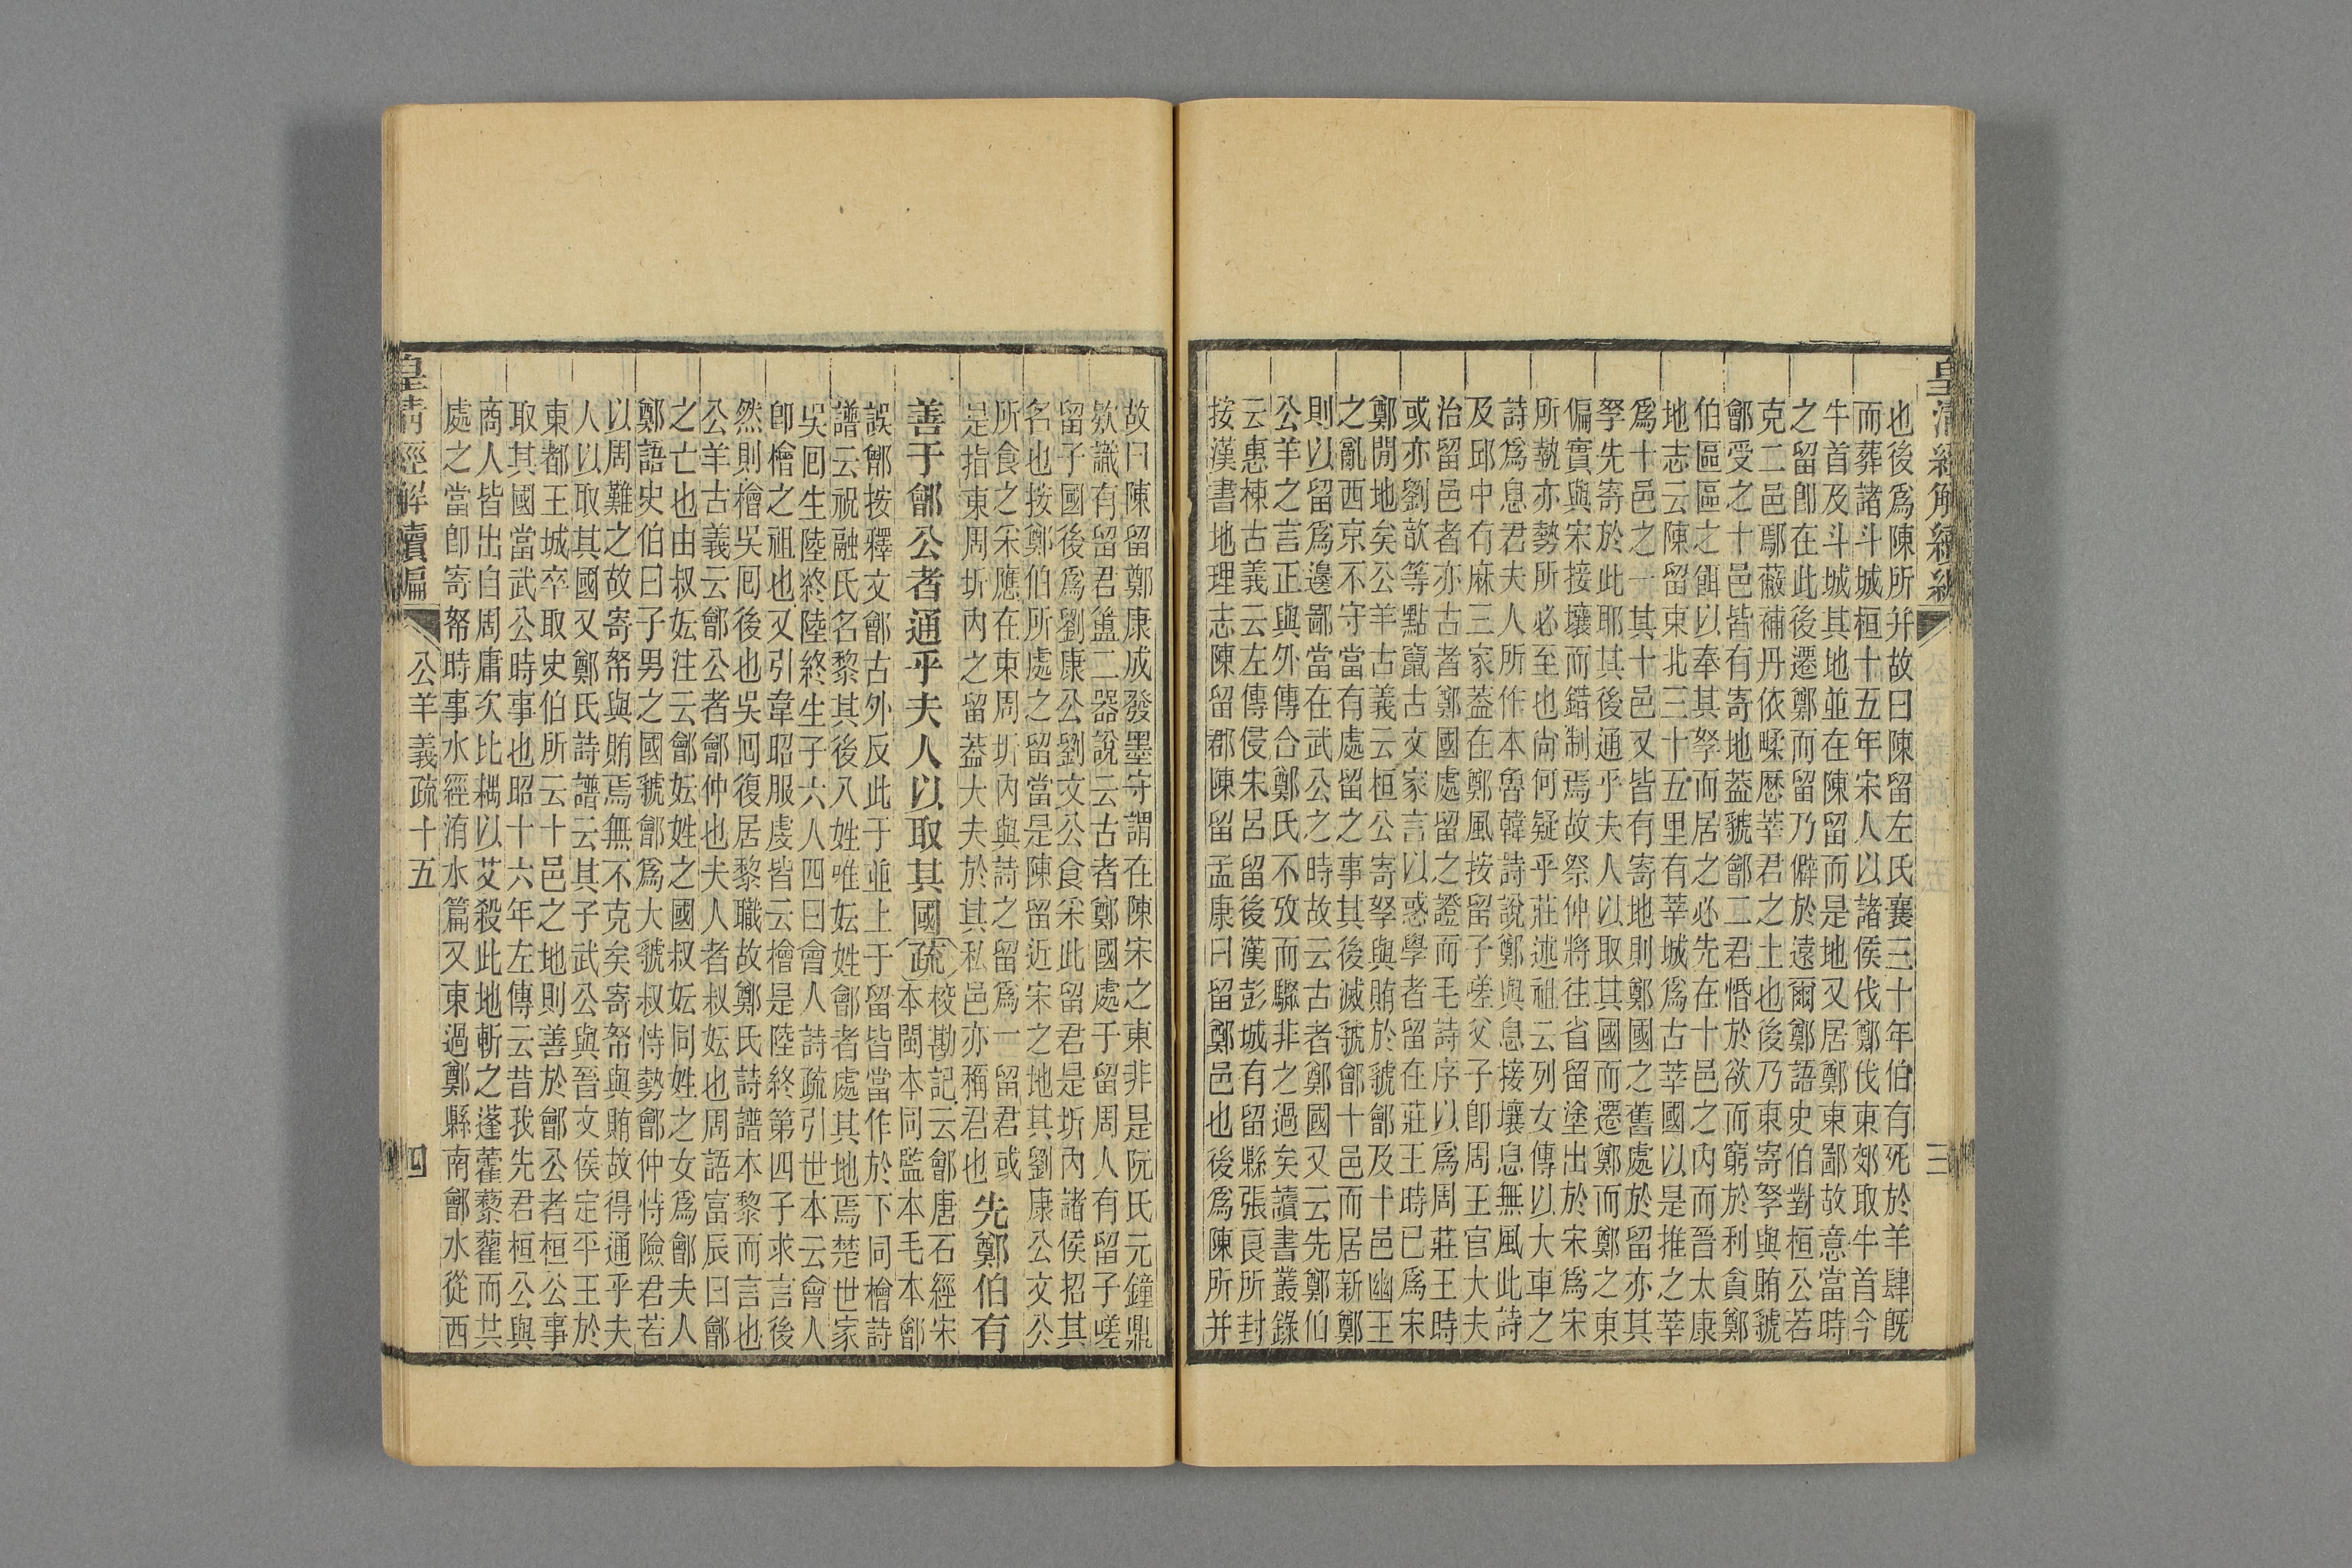 皇清經解續編
三
也後爲陳所幷故曰陳留左氏襄三十年伯有死於羊肆旣
而葬諸斗城桓十五年宋人以諸侯伐鄭伐東郊取牛首今
牛首及斗城其地並在陳留而是地又居鄭東鄙故意當時
之留卽在此後遷鄭而留乃僻於遠爾鄭語史伯對桓公若
克二邑鄢蔽補丹依㽥歷莘君之土也後乃東寄孥與賄虢
鄶受之十邑皆有寄地蓋虢鄶二君惛於欲而窮於利貪鄭
伯區區之餌以奉其孥而居之必先在十邑之內而晉太康
地志云陳留東北三十五里有莘城爲古莘國以是推之莘
爲十邑之一其十邑又皆有寄地則鄭國之舊處於留亦其
孥先寄於此耶其後通乎夫人以取其國而遷鄭而鄭之東
偏實與宋接壤而錯制焉故祭仲將往省留塗出於宋爲宋
所執亦勢所必至也尚何疑乎莊述祖云列女傳以大車之
詩爲息君夫人所作本魯韓詩說鄭與息接壤息無風此詩
及邱中有麻三家蓋在鄭風按留子嗟父子卽周王官大夫
治留邑者亦古者鄭國處留之證而毛詩序以爲周莊王時
或亦劉歆等點竄古文家言以惑學者留在莊王時已爲宋
鄭閒地矣公羊古義云桓公寄孥與賄於虢鄶及十邑幽王
之亂西京不守當有處留之事其後滅虢鄶十邑而居新鄭
則以留爲邊鄙當在武公之時故云古者鄭國又云先鄭伯
公羊之言正與外傳合鄭氏不攷而驟非之過矣讀書叢錄
云惠棟古義云左傳侵朱呂留後漢彭城有留縣張良所封
按漢書地理志陳留郡陳留孟康曰留鄭邑也後爲陳所幷
故曰陳留鄭康成發墨守謂在陳宋之東非是阮氏元鐘鼎
欵識有留君簠二器說云古者鄭國處于留周人有留子嗟
留子國後爲劉康公劉文公食采此留君是圻內諸侯招其
名也按鄭伯所處之留當是陳留近宋之地其劉康公文公
所食之宋應在東周圻內與詩之留爲一留君或
是指東周圻內之留蓋大夫於其私邑亦稱君也 先鄭伯有
善于鄶公者通乎夫人以取其國疏校勘記云鄶唐石經宋
本閩本同監本毛本鄶
誤鄫按釋文鄶古外反此于並上于留皆當作於下同檜詩
譜云祝融氏名黎其後八姓唯妘姓鄶者處其地焉楚世家
吳回生陸終陸終生子六人四曰會人詩疏引世本云會人
卽檜之祖也又引韋昭服虔皆云檜是陸終第四子求言後
然則檜吳囘後也吳囘復居黎職故鄭氏詩譜本黎而言也
公羊古義云鄶公者鄶仲也夫人者叔妘也周語富辰曰鄶
之亡也由叔妘注云鄶妘姓之國叔妘同姓之女爲鄶夫人
鄭語史伯曰子男之國虢鄶爲大虢叔恃勢鄶仲恃險君若
以周難之故寄帑與賄焉無不克矣寄帑與賄故得通乎夫
人以取其國又鄭氏詩譜云其子武公與晉文侯定平王於
東都王城卒取史伯所云十邑之地則善於鄶公者桓公事
取其國當武公時事也昭十六年左傳云昔我先君桓公與
商人皆出自周庸次比耦以艾殺此地斬之蓬藋藜藿而共
處之當卽寄帑時事水經洧水篇又東過鄭縣南鄶水從西
皇清經解續編
公羊義疏十五
四